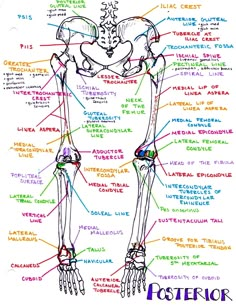 POSTERIOR
GLUTEAL LINE
ILIAC CREST
PSIS
ANTERIOR GLUTEAL
LINE
PIIS
TUBERCLE OF
ILIAC CREST
TROCHANTERIC FOSSA
GREATER
TROCHANTER
ISCHIAL SPINE
PECTINEAL LINE
SPIRAL LINE
LESSER
TROCHANTER
INTERTROCHANTERIC
CREST
ISCHIAL
TUBEROSITY
NECK
OF THE
FEMUR
MEDIAL LIP OF
LINEA ASPERA
LATERAL LIP OF
LINEA ASPERA
GLUTEAL
TUBEROSITY
LINEA ASPERA
LATERAL
SUPRACONDYLAR
LINE
MEDIAL FEMORAL
CONDYLE
MEDIAL EPICONDYLE
MEDIAL
LINE
ADDUCTOR
TUBERCLE
LATERAL FEMORAL
CONDYLE
HEAD OF THE FIBULA
POPLITEAL
SURFACE
INTERCONDYLAR
FOSSA
LATERAL EPICONDYLE
LATERAL TIBIAL
CONDYLE
MEDIAL TIBIAL
CONDYLE
INTERCONDYLAR
TUBERCLES OF
INTERCONDYLAR
EMINENCE
VERTICAL
LINE
SOLEAL LINE
SUSTENTACULUM TALI
LATERAL
MALLEOLUS
MEDIAL
MALLEOLUS
GROOVE FOR TIBIALIS
POSTERIOR TENDON
TALUS
CALCANEUS
NAVICULAR
TUBEROSITY OF
5TH METATARSAL
CUBOID
ANTERIOR
CALCANEAL
TUBERCLE
TUBEROSITY OF CUBOID
POSTERIOR